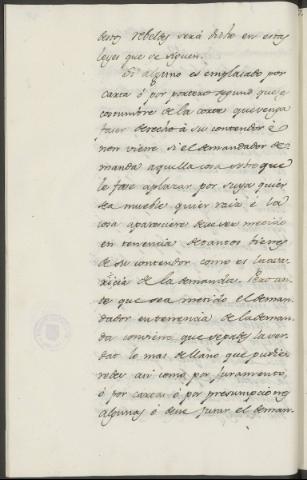 destos rebeldes será fecho en estas
leyes que se siguen.
Si alguno es emplasado por
carta ó por portero segund que es
costumbre de la corte que venga
faser derecho á su contendor é
non viene si el demandador de
manda aquella cosa sobre que
le fase aplazar por suya quier
sea mueble quier raiz é la
cosa aparesciere deve ser metido
en tenencia de tantos bienes
de su contendor como es la
de la demanda. Pero an
te que sea metido el deman
dador en tenencia de la deman
da conviene que sepades la ver
dat lo mas de llano que pudie
redes asi como por juramento
ó por cartas ó por presumpciones
algunas é deve jurar el deman-